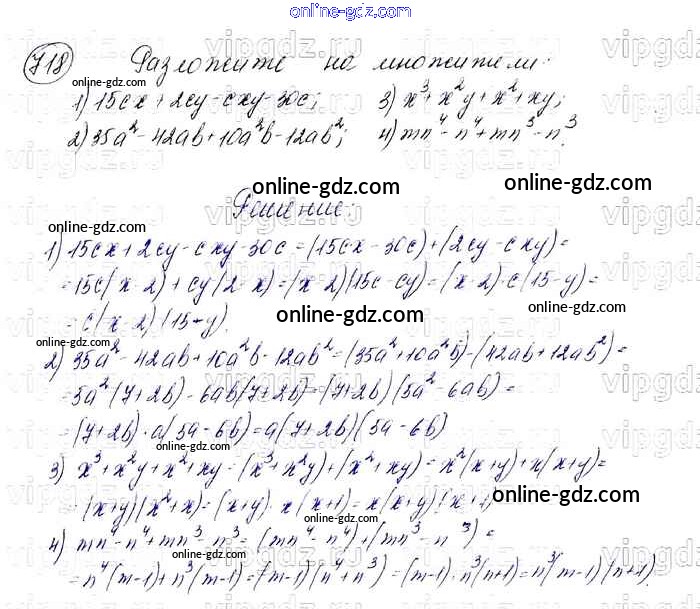 online-gdz.com
718 Разложите на множители:
online-gdz.com
1) 15cx + 2cy - cxy - 30c; 3) x³ + x²y + x² + xy;
2) 35a² - 42ab + 10a²b - 12ab²; 4) mn⁴ - n⁴ + mn³ - n³.
online-gdz.com online-gdz.com
Решение:
online-gdz.com
1) 15cx + 2cy - cxy - 30c = (15cx - 30c) + (2cy - cxy) =
= 15c(x - 2) + cy(2 - x) = (x - 2)(15c - cy) = (x - 2) · c(15 - y) =
= c(x - 2)(15 - y).
online-gdz.com online-gdz.com
online-gdz.com
2) 35a² - 42ab + 10a²b - 12ab² = (35a² + 10a²b) - (42ab + 12ab²) =
= 5a²(7 + 2b) - 6ab(7 + 2b) = (7 + 2b)(5a² - 6ab) =
online-gdz.com
= (7 + 2b) · a(5a - 6b) = a(7 + 2b)(5a - 6b)
online-gdz.com
3) x³ + x²y + x² + xy = (x³ + x²y) + (x² + xy) = x²(x + y) + x(x + y) =
= (x + y)(x² + x) = (x + y) · x(x + 1) = x(x + y)(x + 1)
online-gdz.com
online-gdz.com
4) mn⁴ - n⁴ + mn³ - n³ = (mn⁴ - n⁴) + (mn³ - n³) =
online-gdz.com
= n⁴(m - 1) + n³(m - 1) = (m - 1)(n⁴ + n³) = (m - 1) · n³(n + 1) = n³(m - 1)(n + 1)
online-gdz.com